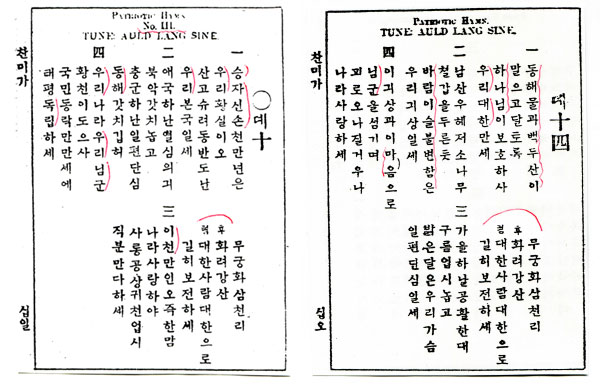 PATRIOTIC HYMN.
No. III.
TUNE: AULD LANG SINE.
◯뎨十
一 승자신손천만년은
우리황실이오
산고슈려동반도난
우리본국일세
후렴
무궁화삼천리
화려강산
대한사람대한으로
길히보전하세
二 애국하난렬심의긔
북악갓치놉고
충군하난일편단심
동해갓치깁허
三 이천만인오즉한맘
나라사랑하야
사롱공상귀천업시
직분만다하세
四 우리나라우리님군
황천이도으사
국민동락만만세에
태평독립하세
찬미가
십일
PATRIOTIC HYMN.
TUNE: AULD LANG SINE.
뎨十四
一 동해물과백두산이
말으고달토록
하나님이보호하사
우리대한만세
후렴
무궁화삼천리
화려강산
대한사람대한으로
길히보전하세
二 남산우헤저소나무
철갑을두른듯
바람이슬불변함은
우리긔상일세
三 가을하날공활한대
구름업시놉고
밝은달은우리가슴
일편딘심일세
四 이긔상과이마음으로
님군을섬기며
괴로오나질거우나
나라사랑하세
찬미가
십오